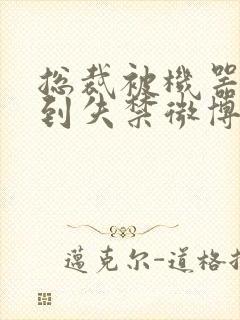 总裁被機器
到失禁微博
邁克尔-道格拉